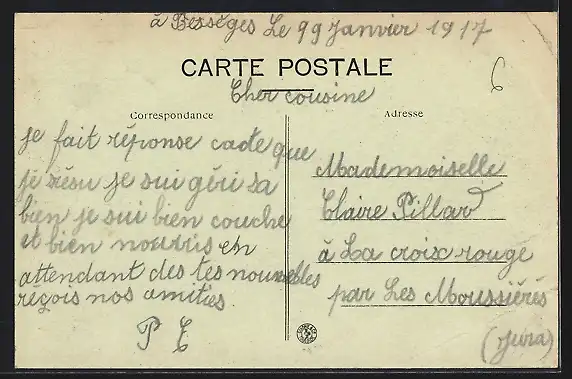 à Bessèges Le 99 Janvier 1917
CARTE POSTALE
6
Cher cousine
Correspondance
je fait réponse cade que
je résu je sui géri sa
bien je sui bien couche
et bien nouris en
attendant des tes nouvelles
reçois nos amities
P C
Adresse
Mademoiselle
Claire Pillard
à La croix rouge
par Les Moussiérés
(Jura)